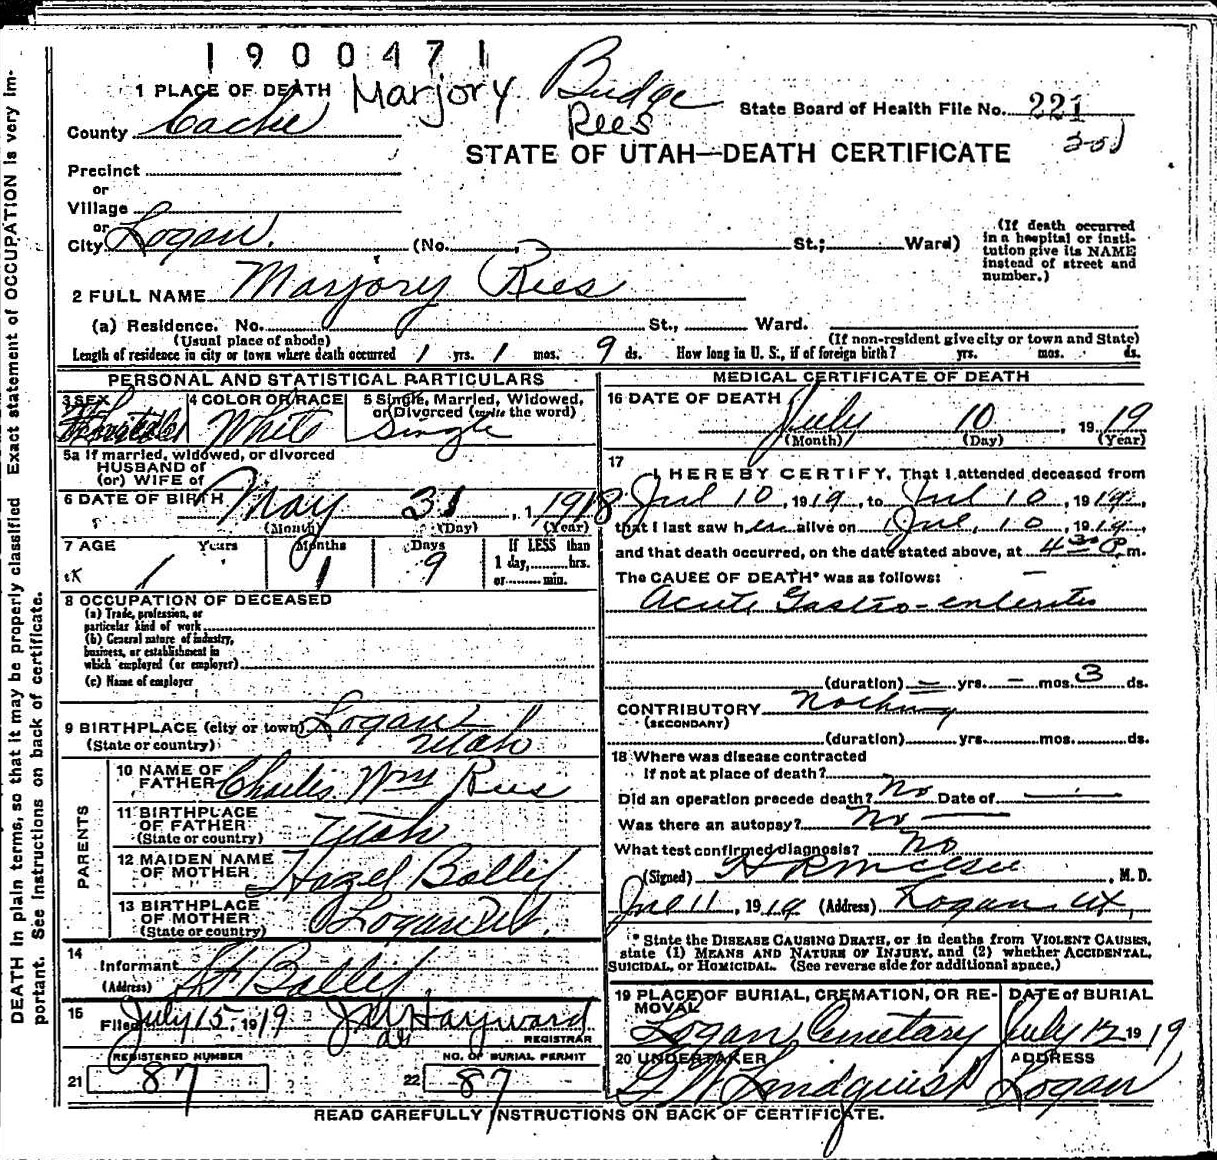 1900471
1 PLACE OF DEATH Marjory Budge
Rees
State Board of Health File No. 221
County Cache
STATE OF UTAH—DEATH CERTIFICATE
Precinct
or
Village
or
City Logan. (No. St.; Ward)
(If death occurred in a hospital or institution give its NAME instead of street and number.)
2 FULL NAME Marjory Rees
(a) Residence. No. St., Ward.
(Usual place of abode) (If non-resident give city or town and State)
Length of residence in city or town where death occurred 1 yrs. 1 mos. 9 ds. How long in U. S., if of foreign birth? yrs. mos. ds.
PERSONAL AND STATISTICAL PARTICULARS
3 SEX 4 COLOR OR RACE 5 Single, Married, Widowed, or Divorced (write the word)
White Single
5a If married, widowed, or divorced
HUSBAND of
(or) WIFE of
6 DATE OF BIRTH May 31, 1918
(Month) (Day) (Year)
7 AGE Years Months Days If LESS than
1 day, hrs.
or min.
1 1 9
8 OCCUPATION OF DECEASED
(a) Trade, profession, or
particular kind of work
(b) General nature of industry,
business, or establishment in
which employed (or employer)
(c) Name of employer
9 BIRTHPLACE (city or town) Logan
(State or country) Utah
PARENTS
10 NAME OF
FATHER Charles Wm Rees
11 BIRTHPLACE
OF FATHER Utah
(State or country)
12 MAIDEN NAME
OF MOTHER Hazel Ballif
13 BIRTHPLACE
OF MOTHER Logan Ut.
(State or country)
14
Informant Ballif
(Address)
15 Filed July 15, 1919 Hayward
REGISTRAR
REGISTERED NUMBER NO. OF BURIAL PERMIT
21 87 22 87
MEDICAL CERTIFICATE OF DEATH
16 DATE OF DEATH
July 10, 1919
(Month) (Day) (Year)
17
I HEREBY CERTIFY, That I attended deceased from
Jul 10, 1919, to Jul 10, 1919,
that I last saw her alive on Jul, 10, 1919,
and that death occurred, on the date stated above, at 4 30 P. m.
The CAUSE OF DEATH* was as follows:
Acute Gastro-enteritis
(duration) — yrs. — mos. 3 ds.
CONTRIBUTORY Nothing
(SECONDARY)
(duration) yrs. mos. ds.
18 Where was disease contracted
if not at place of death?
Did an operation precede death? No Date of —
Was there an autopsy? No —
What test confirmed diagnosis? No
(Signed) , M. D.
Jul 11, 1919 (Address) Logan Ut,
* State the DISEASE CAUSING DEATH, or in deaths from VIOLENT CAUSES,
state (1) MEANS AND NATURE OF INJURY, and (2) whether ACCIDENTAL,
SUICIDAL, or HOMICIDAL. (See reverse side for additional space.)
19 PLACE OF BURIAL, CREMATION, OR REMOVAL DATE of BURIAL
Logan Cemetary July 12 1919
20 UNDERTAKER ADDRESS
Lindquist Logan
READ CAREFULLY INSTRUCTIONS ON BACK OF CERTIFICATE.
DEATH in plain terms, so that it may be properly classified Exact statement of OCCUPATION is very im-
portant. See instructions on back of certificate.